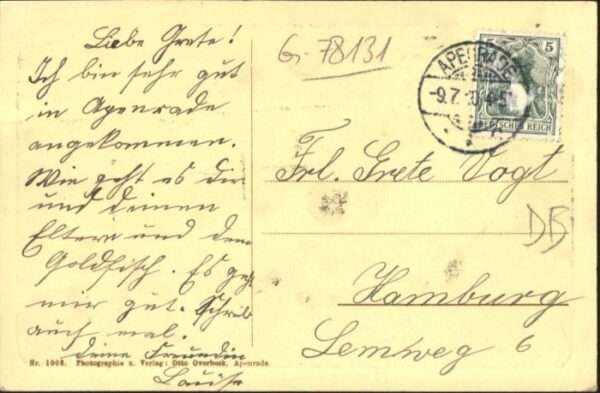 Liebe Grete!
Ich bin sehr gut
in Apenrade
angekommen.
Wie geht es dir
und deinen
Eltern und dem
Goldfisch. Es geht
mir gut. Schreib
auch mal.
deine Freundin
Louise
Nr. 1008. Photographie u. Verlag: Otto Overbeck, Apenrade.
G-78131
APENRADE
-9.7.
5
DEUTSCHES REICH
Frl. Grete Vogt
DB
Hamburg
Lemweg 6